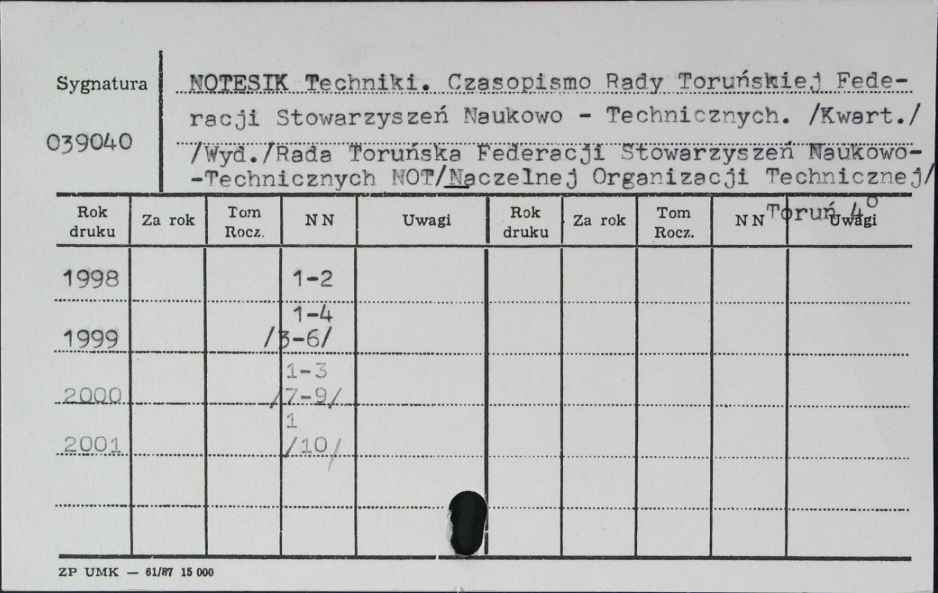 Sygnatura
039040
NOTESIK Techniki. Czasopismo Rady Toruńskiej Fede-
racji Stowarzyszeń Naukowo - Technicznych. /Kwart./
/Wyd./Rada Toruńska Federacji Stowarzyszeń Naukowo-
-Technicznych NOT/Naczelnej Organizacji Technicznej/
Toruń 4°
Rok druku Za rok Tom Rocz. N N Uwagi Rok druku Za rok Tom Rocz. N N Uwagi
1998 1-2
1-4
1999 /3-6/
1-3
2000 /7-9/
1
2001 /10/
ZP UMK — 61/87 15 000